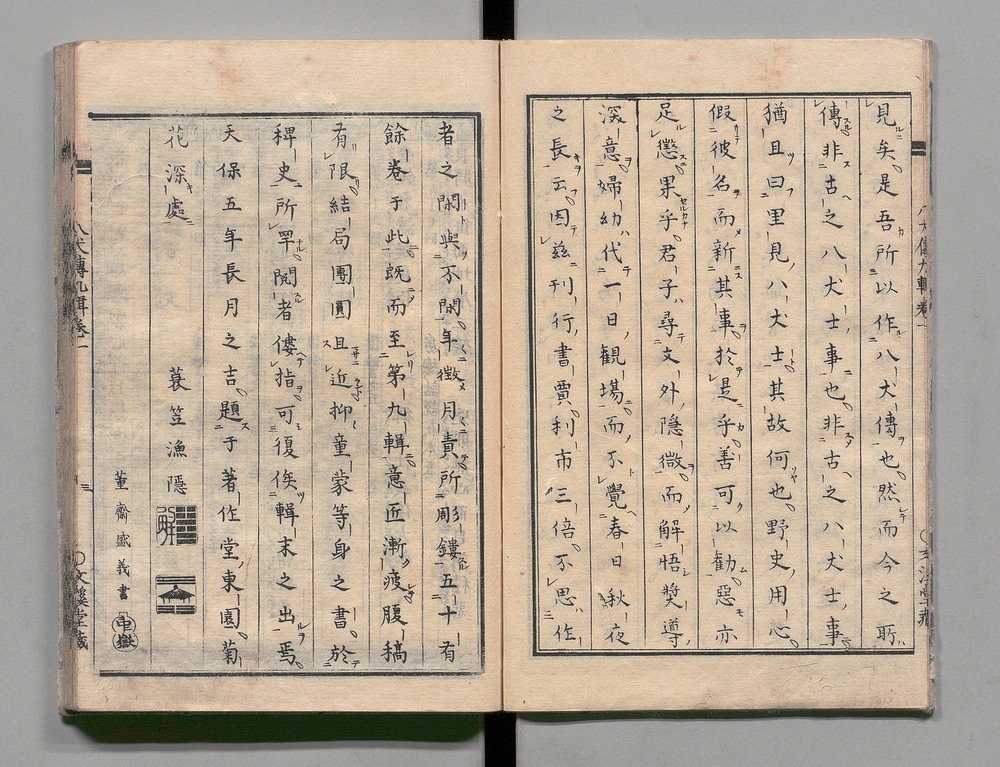 見矣。是吾所以作八犬傳也。然而今之所
傳非古之八犬士事也。非古之八犬士事。
猶且曰里見八犬士。其故何也。野史用心。
假彼名而新其事。於是乎善可以勸。惡亦
足懲。果乎。君子尋文外隱微。而解悟奬導。
深意婦幼代一日觀場。而不覺春日秋夜
之長云。因茲刊行。書賈利市三倍。不思作
者之閑與不閑。年徵月責。所彫鏤五十有
餘卷于此。既而至第九輯。意匠漸疲。腹稿
有限。結局團圓且近。抑童蒙等身之書。於
稗史所罕。閲者僂指。可復俟輯末之出焉。
天保五年長月之吉。題于著作堂東園菊
花深處
蓑笠漁隱
董齋盛義書
八犬傳九輯卷一
文溪堂藏